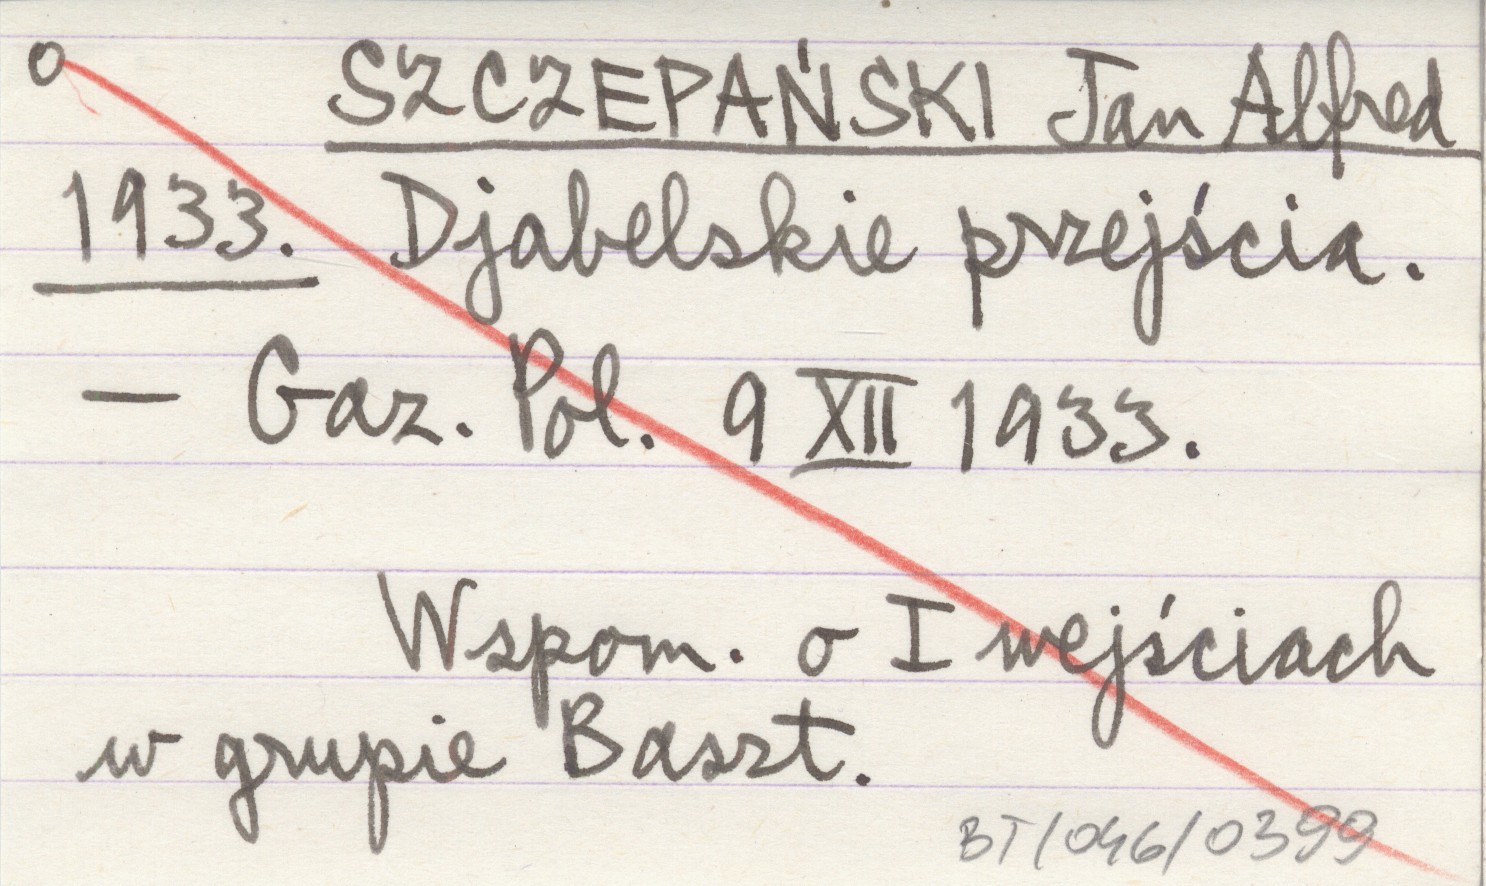 o SZCZEPAŃSKI Jan Alfred
1933. Djabelskie przejścia.
— Gaz. Pol. 9 XII 1933.
Wspom. o I wejściach
w grupie Baszt.
BT/046/0399